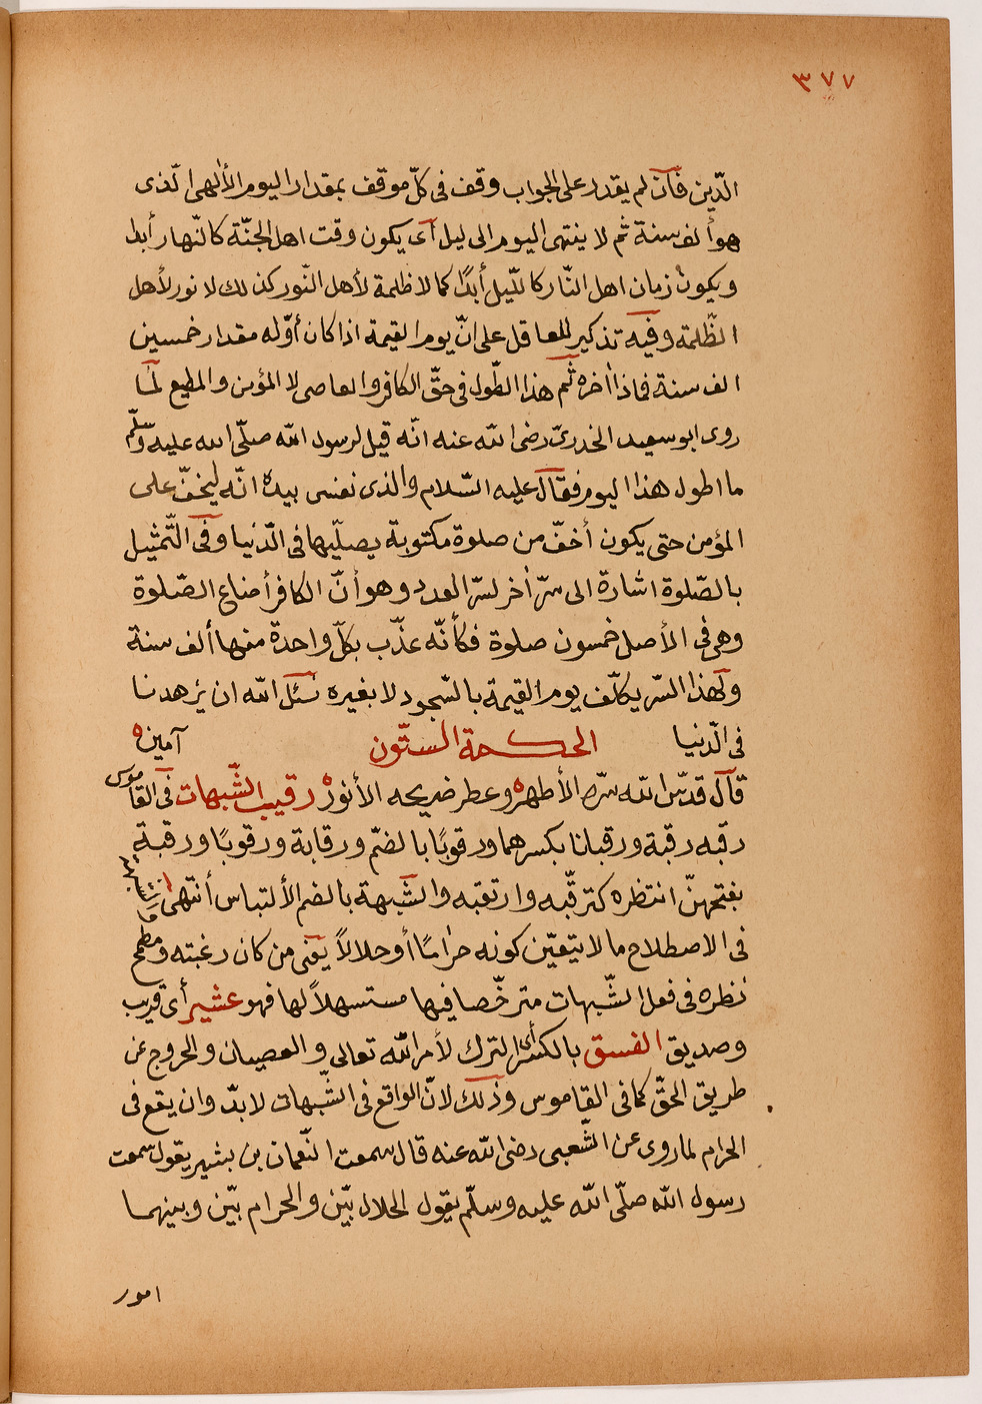 ٣٧٧
الدّين فآن لم يقدر على الجواب وقف فى كلّ موقف بمقدار اليوم الألٰهى الّذى
هو ألف سنة ثم لا ينتهى اليوم الى ليل أى يكون وقت اهل الجنّة كالنّهار أبدا
ويكون زمان اهل النّار كاللّيل أبدًا كما لا ظلمة لأهل النّور كذلك لا نور لأهل
الظّلمة وفيه تذكير للعاقل على انّ يوم القيمة اذا كان أوّله مقدار خمسين
الف سنة فماذا أخره ثم هذا الطّول فى حقّ الكافر والعاصى لا المؤمن والمطيع لما
روى ابو سعيد الخدرىّ رضى الله عنه انّه قيل لرسول الله صلّى الله عليه وسلّم
ما اطول هذا اليوم فقال عليه السّلام والذى نفسى بيده انّه ليخفّ على
المؤمن حتى يكون أخفّ من صلوة مكتوبة يصلّيها فى الدّنيا وفى التّمثيل
بالصّلوة اشارة الى سرّ أخر لسرّ العدد وهو أنّ الكافر أضاع الصّلوة
وهى فى الأصل خمسون صلوة فكأنّه عذّب بكلّ واحدة منها ألف سنة
ولهذا السّر يكلّف يوم القيمة بالسّجود لا بغيره نسئل الله ان يزهدنا
فى الدّنيا آمين
الحكمة الستّون
قال قدّس الله سرّه الأطهر وعطر ضريحه الأنور رقيب الشّبهات فى القاموس
رقبه رقبة ورقبانا بكسرهما ورقوبًا بالضمّ ورقابة ورقوبًا ورقبة
بفتحهنّ انتظره كترقّبه وارتقبه والشّبهة بالضم الألتباس أنتهى
فى الاصطلاح ما لا يتعيّن كونه حرامًا أو حلالاً يعنى من كان رغبته ومطمح
نظره فى فعل الشّبهات مترخّصا فيها مستسهلاً لها فهو عشير أى قريب
وصديق الفسق بالكسر أى الترك لأمر الله تعالى والعصيان والخروج عن
طريق الحقّ كما فى القاموس وذلك لانّ الواقع فى الشّبهات لابدّ وان يقع فى
الحرام لما روى عن الشّعبى رضى الله عنه قال سمعت النّعمان بن بشير يقول سمعت
رسول الله صلّى الله عليه وسلّم يقول الحلال بيّن والحرام بيّن وبينهما
امور